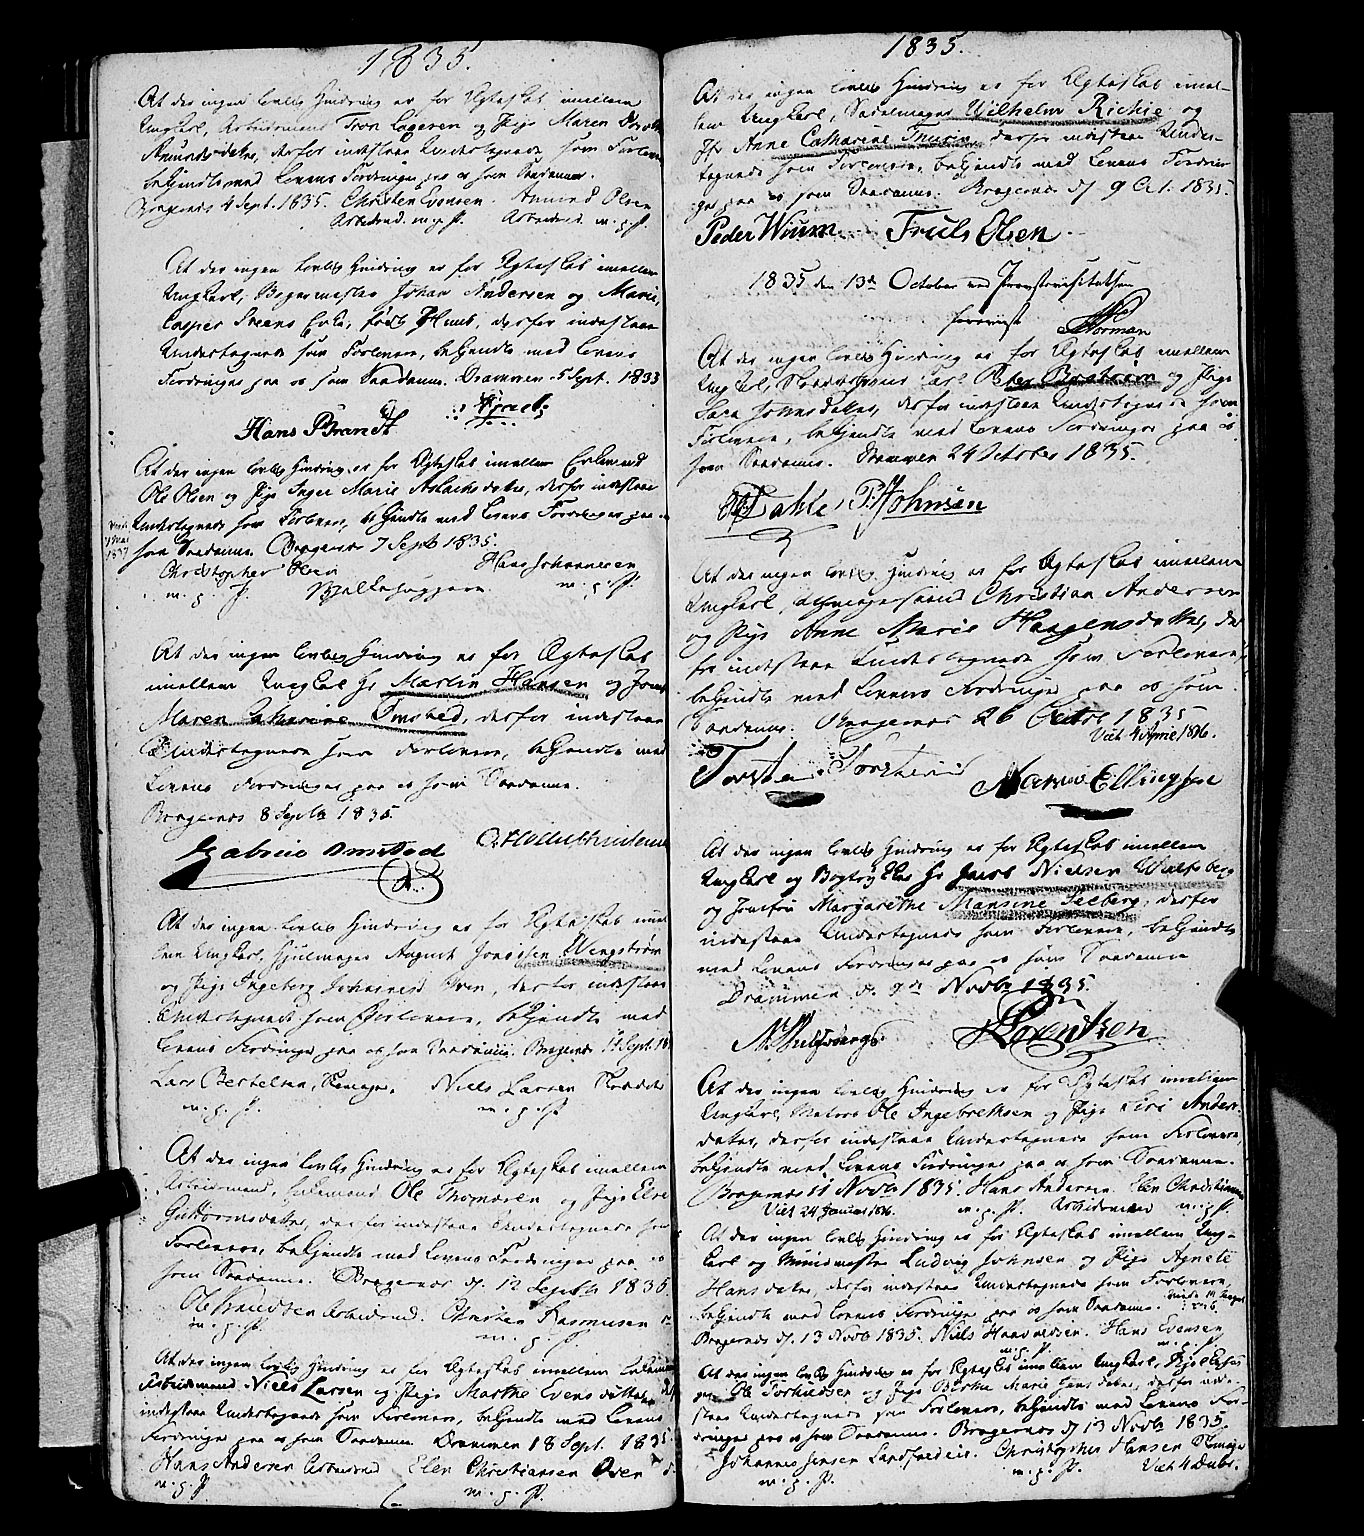 1835.
At der ingen lovlig Hindring er for Ægteskab imellem
Ungkarl, Arbeidsmand Tron Lagesen og Pige Maren Dorothe
Amundsdatter, derfor indestaae Undertegnede som Forlovere,
bekjendte med Lovens Fordringer paa os som Saadanne.
Bragernes 4 Sept. 1835. Christen Evensen. Amund Olsen
Arbeidsmd. m. p. P. Arbeidsmd. m. p. P.
At der ingen lovlig Hindring er for Ægteskab imellem
Ungkarl, Bagermester Johan Andersen og Marie,
Casper Steens Enke, født Hund, derfor indestaae
Undertegnede som Forlovere, bekjendte med Lovens
Fordringer paa os som Saadanne. Drammen 5 Sept. 1835
Hans Brandt
At der ingen lovlig Hindring er for Ægteskab imellem Enkemand
Ole Olsen og Pige Inger Marie Aslaksdatter, derfor indestaae
Undertegnede som Forlovere, bekjendte med Lovens Fordringer paa os
som Saadanne. Bragernes 7 Septb 1835.
1837
Christopher Olsen Hans Johannesen
m. p. P. m. p. P.
At der ingen lovlig Hindring er for Ægteskab
imellem Ungkarl Hr Martin Hansen og Jomfr
Maren Catharine Omsted, derfor indestaae
Undertegnede som Forlovere, bekjendte med
Lovens Fordringer paa os som Saadanne.
Bragernes 8 Septb 1835.
Gabriel Omsted
At der ingen lovlig Hindring er for Ægteskab imel
lem Ungkarl, Hjulmager August Wengström
og Pige Ingeborg Johannesd. Oren, derfor indestaae
Undertegnede som Forlovere, bekjendte med
Lovens Fordringer paa os som Saadanne. Bragernes 14 Sept. 18
Lars Bertelsen, Niels Larsen
m. p. P. m. p. P.
At der ingen lovlig Hindring er for Ægteskab imellem
Arbeidsmand, Enkemand Ole Thomasen og Pige Else
Guttormsdatter, derfor indestaae Undertegnede som
Forlovere, bekjendte med Lovens Fordringer paa os
som Saadanne. Bragernes d. 12 Septb 1835
Ole Knudsen Arbeidsmd. Christen Rasmusen
m. p. P. m. p. P.
At der ingen lovlig Hindring er for Ægteskab imellem Enkemand
Arbeidsmand Niels Larsen og Pige Marthe Evensdatter
indestaae Undertegnede som Forlovere, bekjendte med Lovens
Fordringer paa os som Saadanne. Drammen 18 Sept. 1835
Hans Andersen Arbeidsmd Elen Christiansen Oren
m. p. P m. p. P.
1835.
At der ingen lovlig Hindring er for Ægteskab imel-
lem Ungkarl, Sadelmager Wilhelm Richie og
Jfr Anne Catharine Thurin, derfor indestaae Under-
tegnede som Forlovere, bekjendte med Lovens Fordrin-
ger paa os som Saadanne. Bragernes d. 9 Oct. 1835.
Peder Wium. Truls Olsen.
1835 den 13de October ved Provstevisitatsen
forevist Norman
At der ingen lovlig Hindring er for Ægteskab imellem
Ungkarl, Carl Peter Boström og Pige
Sara Johnsdatter, derfor indestaae Undertegnede som
Forlovere, bekjendte med Lovens Fordringer paa os
som Saadanne. Drammen 24 October 1835.
Dahle, P. Johnsen
At der ingen lovlig Hindring er for Ægteskab imellem
Ungkarl, Christian Andersen
og Pige Anne Marie Haagensdatter, der
for indestaae Undertegnede som Forlovere,
bekjendte med Lovens Fordringer paa os som
Saadanne. Bragernes 26 Octbr 1835
Viet 4 April 1836.
Torsten Torstensen Ellingsen
At der ingen lovlig Hindring er for Ægteskab imellem
Ungkarl og Bogtrykker Hr Jacob Nielsen Wulfsberg
og Jomfru Margarethe Mansine Seeberg, derfor
indestaae Undertegnede som Forlovere, bekjendte
med Lovens Fordringer paa os som Saadanne
Drammen d. 9de Novbr 1835.
N. Wulfsberg. Lorentzen
At der ingen lovlig Hindring er for Ægteskab imellem
Ungkarl, Matros Ole Ingebrethsen og Pige Siri Anders-
datter, derfor indestaae Undertegnede som Forlovere,
bekjendte med Lovens Fordringer paa os som Saadanne.
Bragernes 11 Novb 1835. Hans Andersen Elen Christiansen
Viet 24 Januar 1836. m. p. P. Arbeidsmænd m. p. P.
At der ingen lovlig Hindring er for Ægteskab imellem Ung-
karl og Ludvig Johnsen og Pige Agnete
Hansdatter, derfor indestaae Undertegnede som Forlovere,
bekjendte med Lovens Fordringer paa os som Saadanne.
Bragernes d. 13 Novb 1835. Niels Haavaldsen. Hans Evensen
m. p. P. m. p. P.
At der ingen lovlig Hindring er for Ægteskab imellem Ungkarl,
Ole Torkildsen og Pige Birthe Marie Jensdatter, derfor inde-
staae Undertegnede som Forlovere, bekjendte med Lovens For-
dringer paa os som Saadanne. Bragernes d. 13 Novb 1835.
Johannes Jensen Christopher Hansen
m. p. P. m. p. P. Viet 4 Decbr.